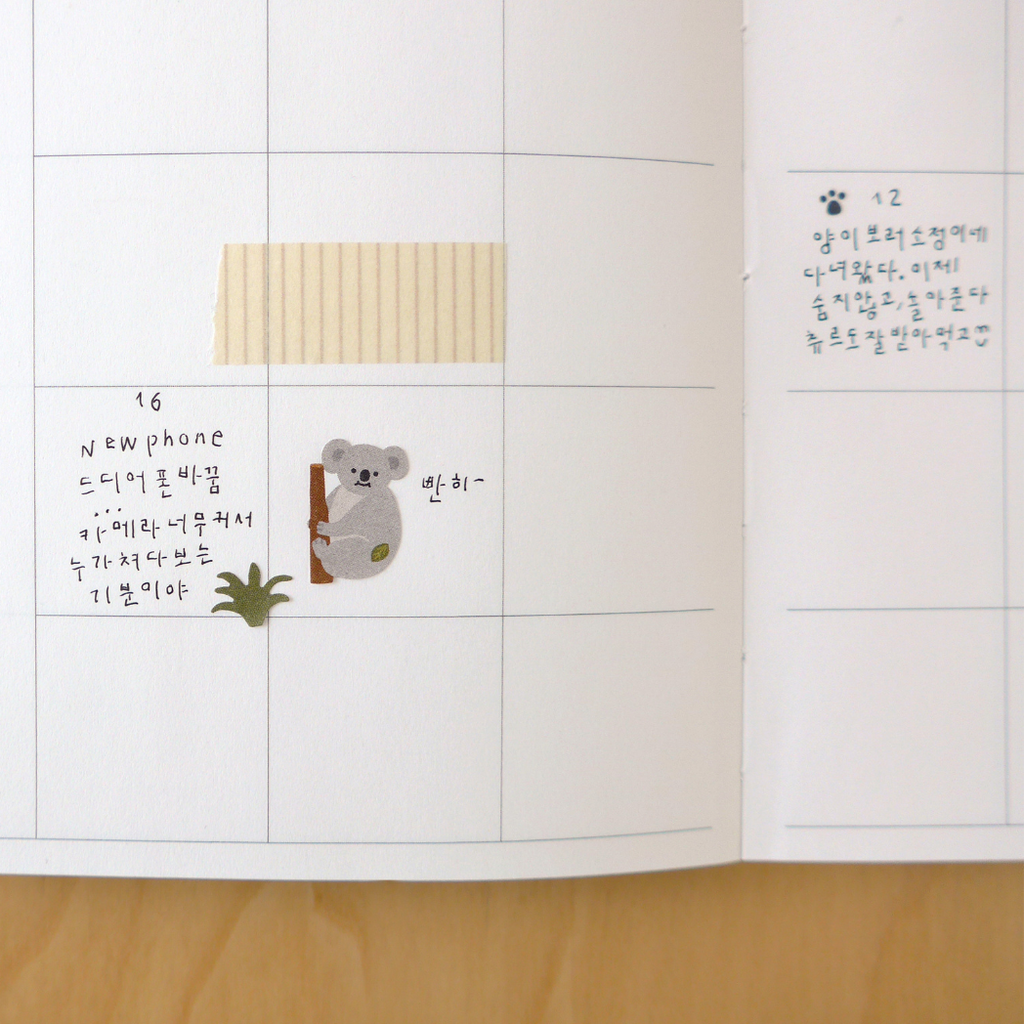 16
New phone
드디어 폰 바꿈
...
카메라 너무 커서
누가 쳐다보는
기분이야
빤히~
12
양이 보러 소정이네
다녀왔다. 이제
숨지않고, 놀아준다
츄르도 잘 받아먹고